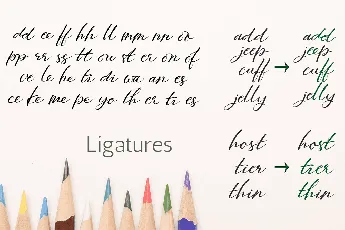 dd ee ff hh ll mm nn in
pp rr ss tt ou st er on of
ve le he ti di wa an es
ce ke me pe yo th er ti es
add
jeep
cuff → cuff
jelly
add
jeep
jelly
Ligatures
host
tier → tier
thin
host
thin